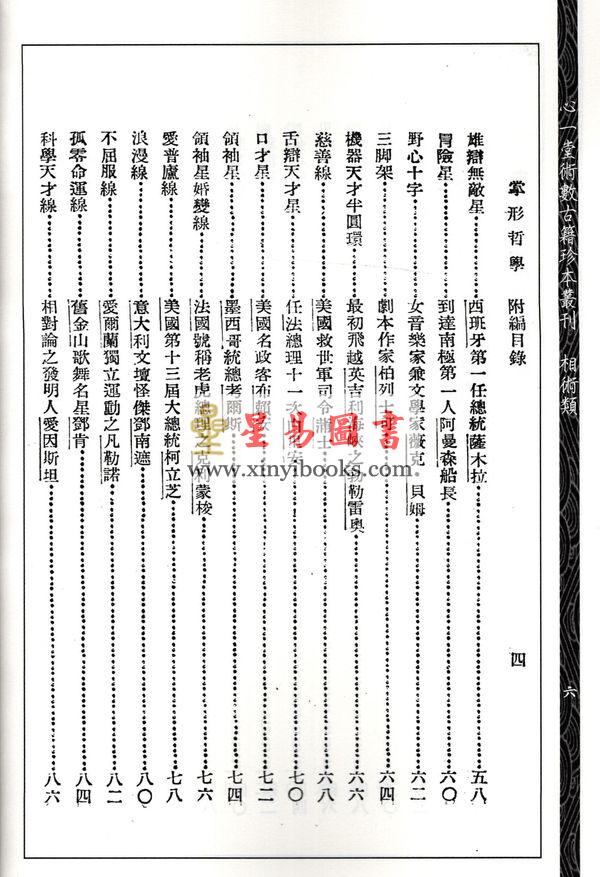 心一堂術數古籍珍本叢刊 相術類 六
掌形哲學 附編目錄 四
雄辯無敵星……西班牙第一任總統薩木拉……五八
冒險星……到達南極第一人阿曼森船長……六〇
野心十字……女音樂家兼文學家薇克 貝姆……六二
三脚架……劇本作家柏列士可……六四
機器天才半圓環……最初飛越英吉利海峽之勃勒雷奥……六六
慈善線……美國救世軍司令蔣士……六八
舌辯天才星……任法總理十一次白里安……七〇
口才星……美國名政客布賴安……七二
領袖星……墨西哥統總考爾斯……七四
領袖星婚變線……法國號稱老虎總理之克利蒙梭……七六
愛普廬線……美國第十三屆大總統柯立芝……七八
浪漫線……意大利文壇怪傑鄧南遮……八〇
不屈服線……愛爾蘭獨立運動之凡勒諾……八二
孤零命運線……舊金山歌舞名星鄧肯……八四
科學天才線……相對論之發明人愛因斯坦……八六
星易圖書
www.xinyibooks.com